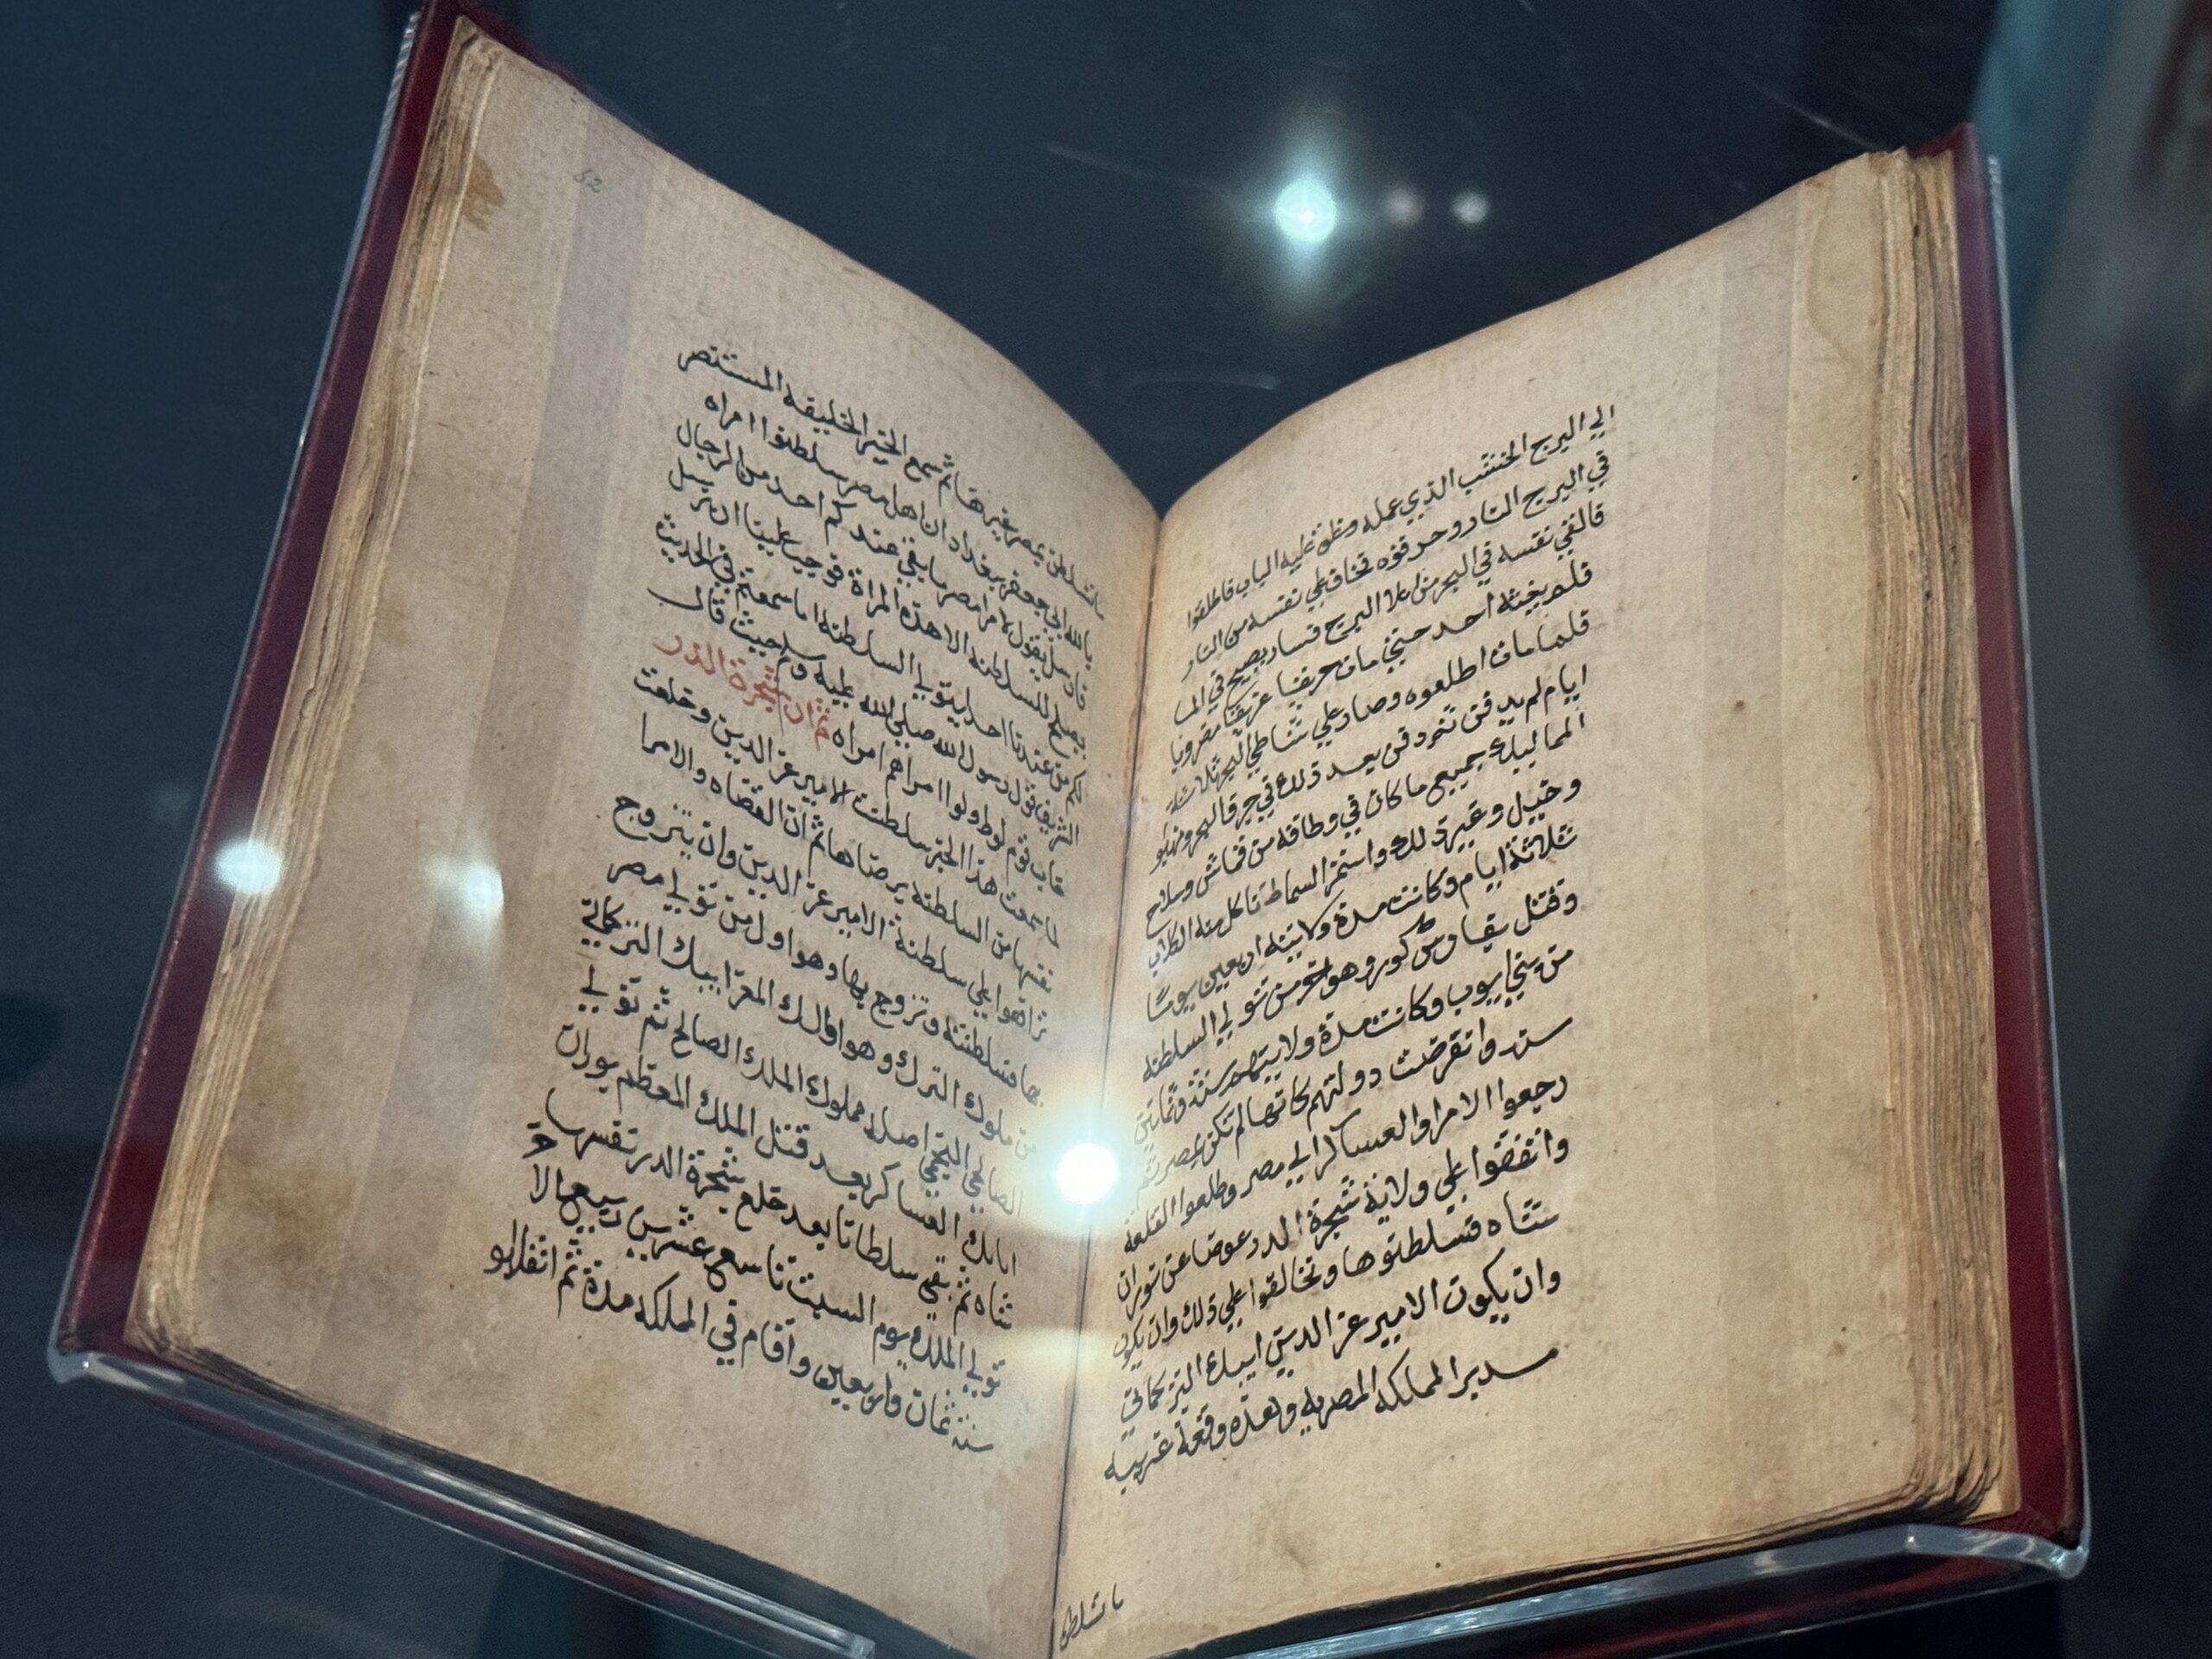 الي البرج الخشب الذي عمله وغلق عليه الباب فاطلقوا
في البرج النار وحرقوه فخاف علي نفسه من النار
فالقي نفسه في البحر من اعلا البرج فصار يصيح في الما
فلم يغيثه احد حتي مات حريقا غريقا مقرونا
فلما مات اطلعوه وصار علي شاطي البحر ثلاثة
ايام لم يدفن ثم دفن بعد ذلك في جرف البحر ونهبو
المماليك جميع ما كان في وطاقه من قماش وسلاح
وخيل وغير ذلك واستمر السماط تاكل منه الكلاب
ثلاثة ايام وكانت مدة ولايته اربعين يومًا
وقتل بفارس كور وهو اخر من تولي السلطنه
من بني ايوب وكانت مدة ولايتهم سنة وثمانين
سنه وانقرضت دولتهم كانها لم تكن بمصر ثم
رجعوا الامرا والعساكر الي مصر وطلعوا القلعة
واتفقوا علي ولاية شجرة الدر عوضا عن توران
شاه فسلطنوها وتحالفوا علي ذلك وان يكون
وان يكون الامير عز الدين ايبك التركماني
مدبر المملكه المصريه وهذه وقعة غريبه
ما تسلطن
52
ما تسلطن بمصر غيرها ثم سمع الخبر الخليفه المستنصر
بالله ابي جعفر ببغداد ان اهل مصر سلطنوا امراه
فارسل يقول لامرا مصر ما بقي عندكم احد من الرجال
يصلح للسلطنه الا هذه المراة فوجب علينا ان نرسل
لكم من عندنا احد ليتولي السلطنه اما سمعتم في الحديث
الشريف قول رسول الله صلي الله عليه وسلم حيث قال
خاب قوم لوط ولوا امراهم امراه ثم ان شجرة الدر
لما سمعت هذا الخبر سلطنت الامير عز الدين وخلعت
نفسها من السلطنه برضاها ثم ان القضاه والامرا
تراضوا علي سلطنة الامير عز الدين وان يتزوج
بها فتسلطن وتزوج بها وهو اول من تولي مصر
من ملوك الترك وهو اول الملك المعز ايبك التركماني
الصالحي النجمي اصله مملوك الملك الصالح ثم تولي
اتابك العساكر بعد قتل الملك المعظم بوران
شاه ثم بقي سلطانا بعد خلع شجرة الدر نفسها
تولي الملك يوم السبت تاسع عشرين ربيع الاخر
سنة ثمان واربعين واقام في المملكه مدة ثم انقلبو